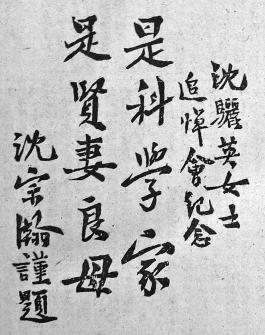 沈驪英女士
追悼會紀念
是科學家
是賢妻良母
沈宗瀚謹題